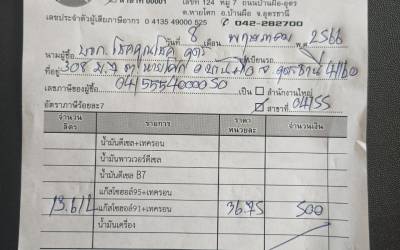 เลขที่ 124 หมู่ 7 ถนนบ้านผือ-อุดร
ต.หายโศก อ.บ้านผือ จ.อุดรธานี
เลขประจำตัวผู้เสียภาษีอากร 0 4135 49000 525 042-282700
วันที่ 8 เดือน พฤษภาคม พ.ศ. 2566
นามผู้ซื้อ
ที่อยู่ 308 ม.7 ต.หายโศก อ.บ้านผือ จ.อุดรธานี 41160
เลขภาษีของผู้ซื้อ เป็น สำนักงานใหญ่
อัตราภาษีร้อยละ7 สาขาที่ 04155
จำนวน ลิตร รายการ ราคา หน่วยละ จำนวนเงิน
น้ำมันดีเซล+เทครอน
น้ำมันพาวเวอร์ดีเซล
น้ำมันดีเซล B7
แก๊สโซฮอล์95+เทครอน
13.61 L แก๊สโซฮอล์91+เทครอน 36.75 500
น้ำมันเครื่อง